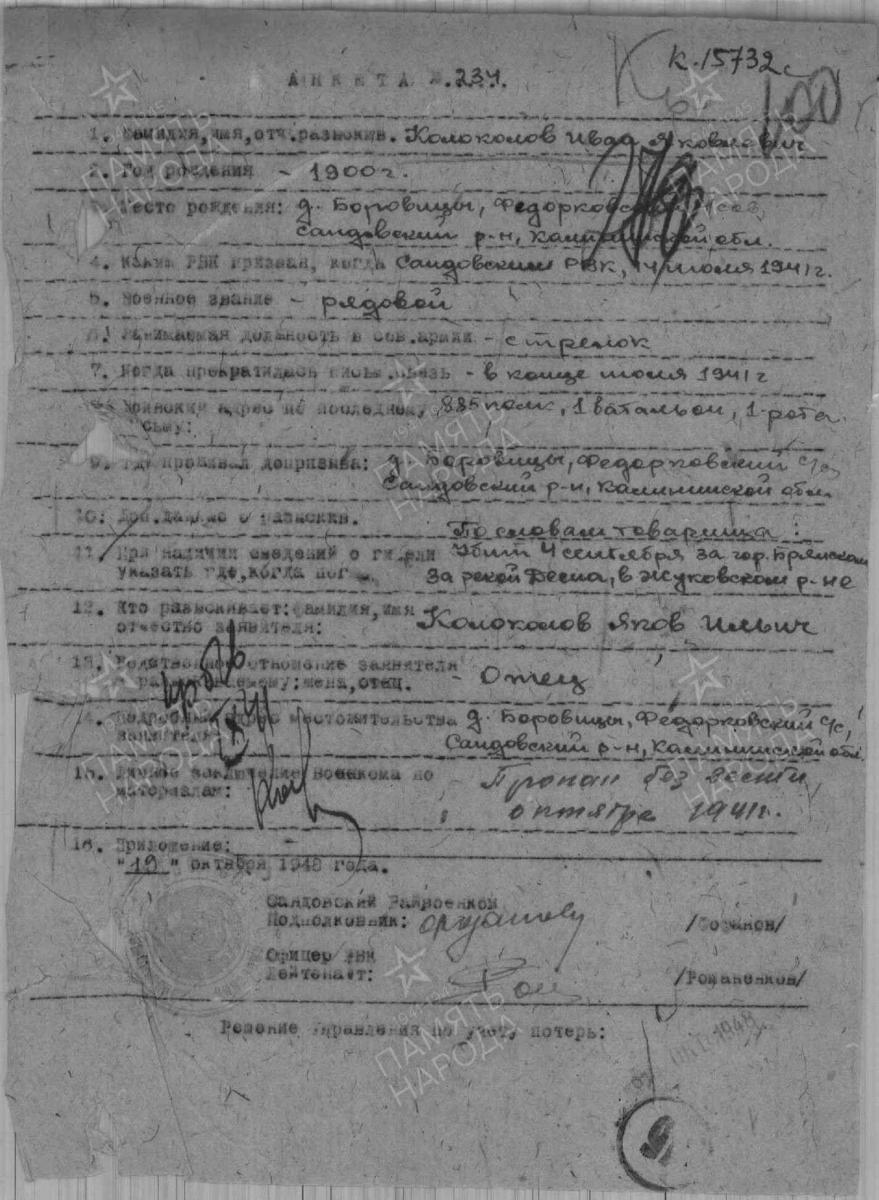 к.15732с
АНКЕТА №.237.
100
1. Фамилия,имя,отч.разыскив. Колоколов Иван Яковлевич
2. Год рождения - 1900г.
3. Место рождения: д. Боровицы, Федорковский с/сов,
Сандовский р-н, Калининской обл.
4. Каким РВК призван, когда Сандовским РВК, 14 июля 1941г.
5. Военное звание - рядовой
6. Занимаемая должность в сов.армии - стрелок
7. Когда прекратилась письм.связь - в конце июля 1941г
8. Воинский адрес по последнему 885 полк, 1 батальон, 1-рота.
письму:
9. Где проживал допризыва: д. Боровицы, Федорковский с/с,
Сандовский р-н, Калининской обл.
10. Доп.данные о разыскив.
По словам товарища:
11. При наличии сведений о гибели Убит 4 сентября за гор. Брянском
указать где,когда пог за рекой Десна, в Жуковском р-не
12. Кто разыскивает:фамилия,имя
отчество заявителя: Колоколов Яков Ильич
13. Родственное отношение заявителя
к разыскиваемому:жена,отец. - Отец
14. Подробный адрес местожительства д. Боровицы, Федорковский с/с,
заявителя: Сандовский р-н, Калининской обл.
15. Личное заключение военкома по Пропал без вести
материалам: октябрь 1941г.
16. Приложение:
"19" октября 1948 года.
Сандовский Райвоенком
Подполковник:
Офицер РВК
Лейтенант: /Романенков/
Решение Управления по учету потерь:
1948
9
ПАМЯТЬ
НАРОДА
1941-1945